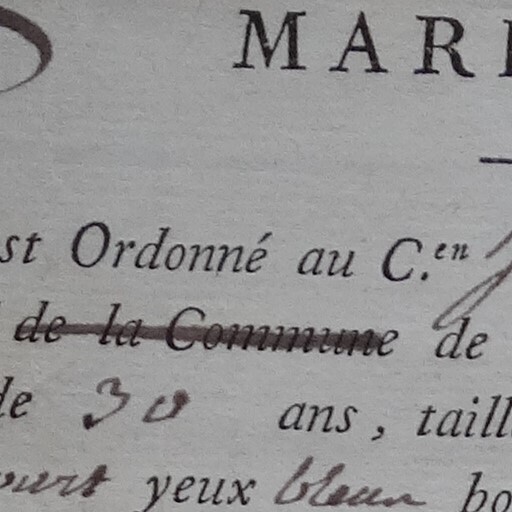 MAR
st Ordonné au C.en
de la Commune de
de 30 ans, taill
yeux bleux bo